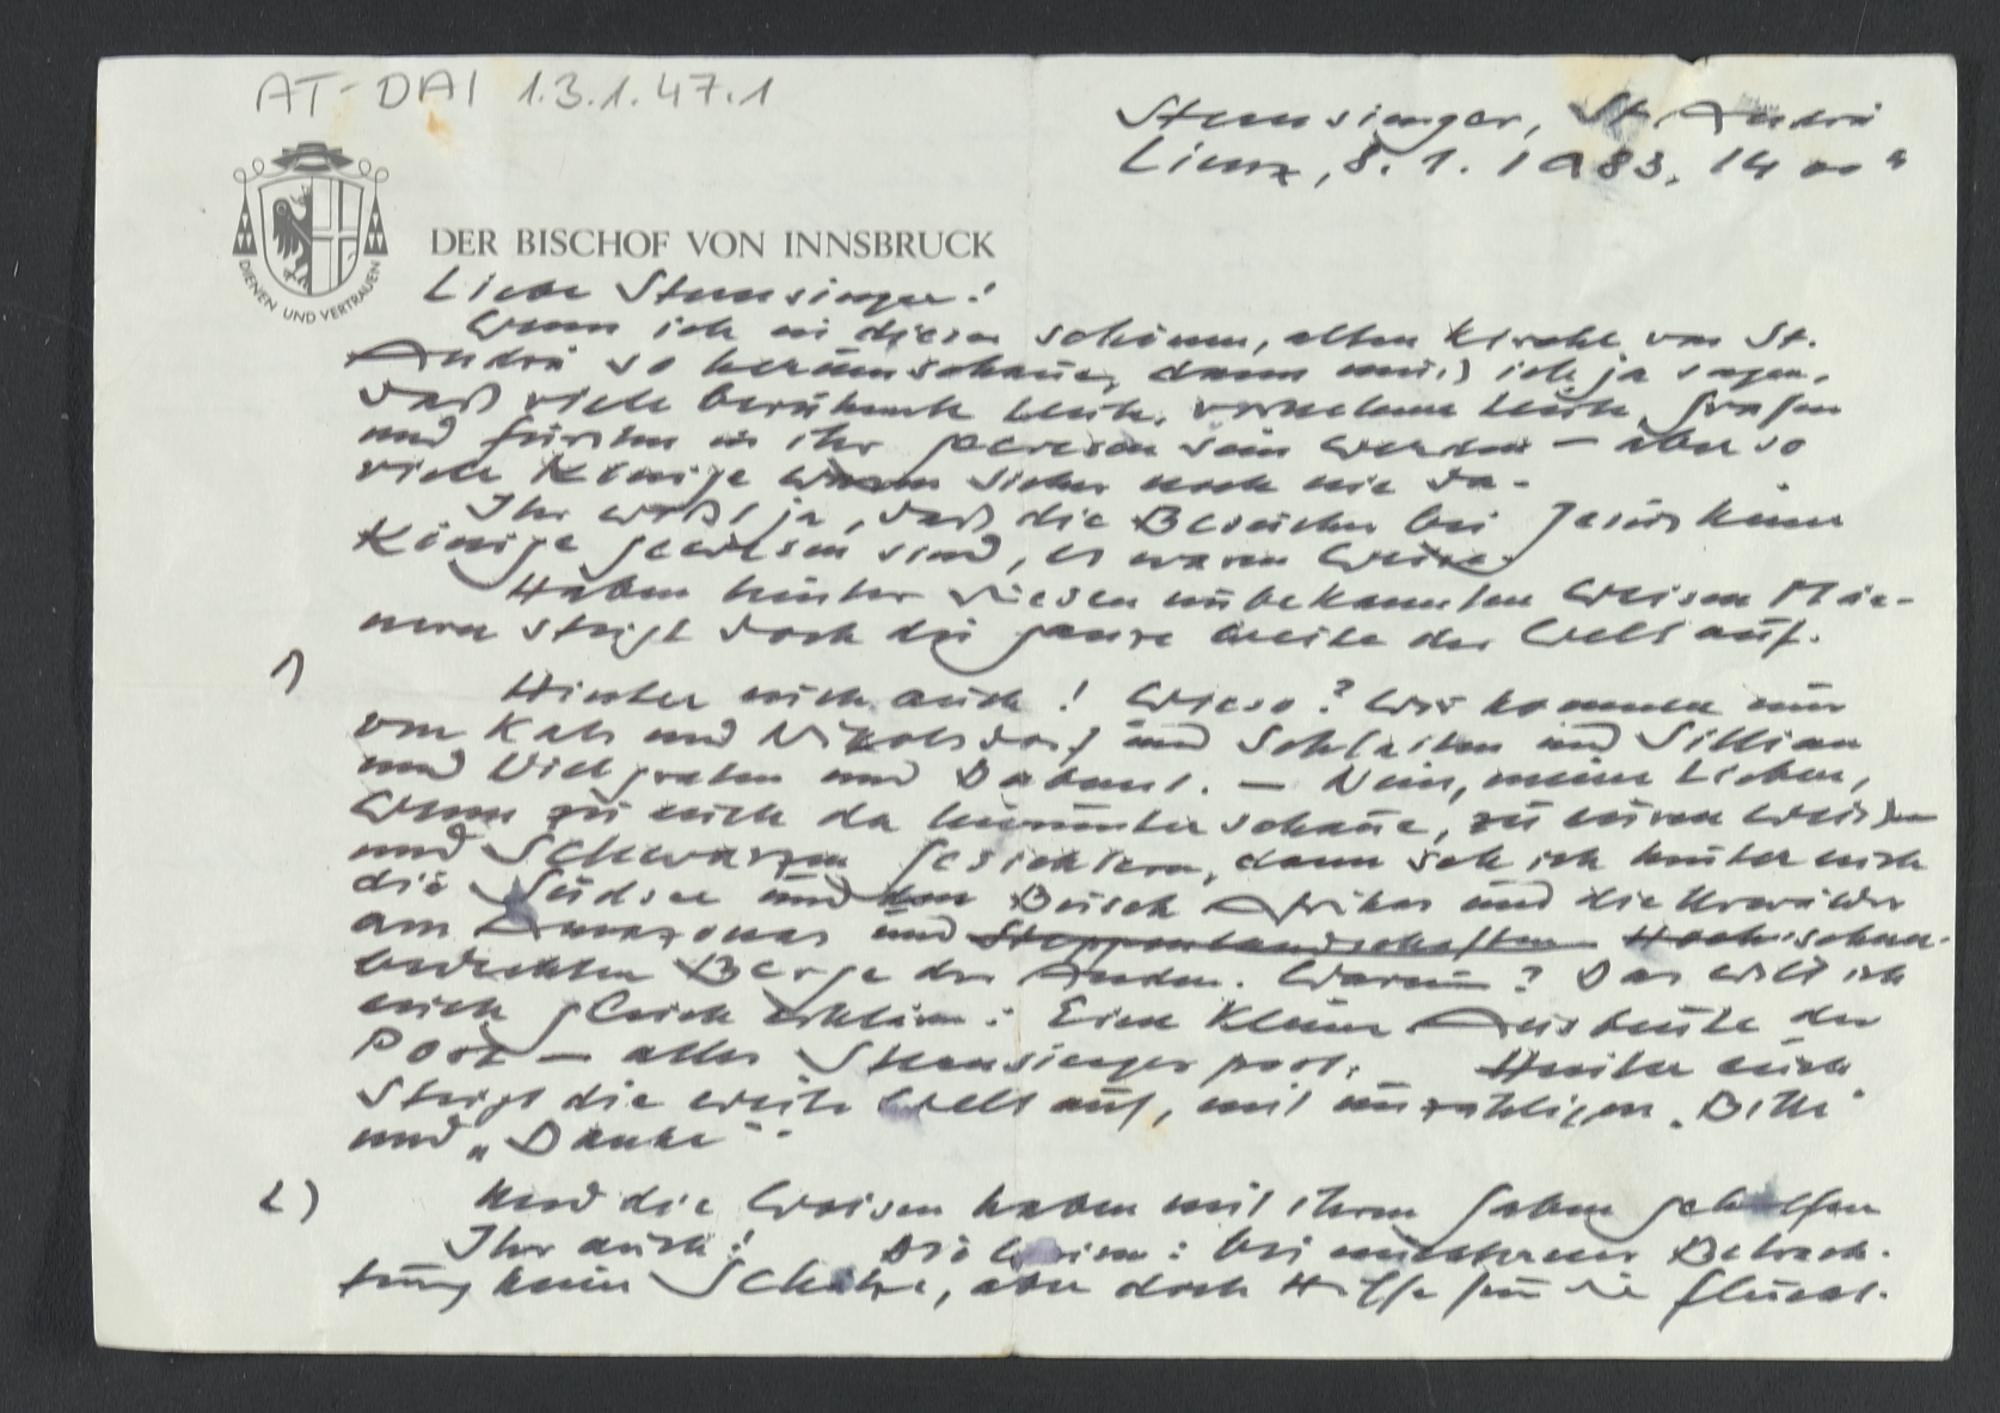 AT-DAI 1.3.1.47.1
Sternsinger, St. Andrä
Lienz, 8.1.1983, 14 00 h
DIENEN UND VERTRAUEN
DER BISCHOF VON INNSBRUCK
Liebe Sternsinger!
Wenn ich in dieser schönen, alten Kirche von St.
Andrä so herumschaue, dann muß ich ja sagen,
daß viele berühmte Leute, vornehme Leute, Grafen
und Fürsten in ihr gewesen sein werden – aber so
viele Könige waren sicher noch nie da.
Ihr wißt ja, daß die Besucher bei Jesus keine
Könige gewesen sind, es waren Weise.
Haben hinter diesen unbekannten Weisen Män-
nern steigt doch die ganze Weite der Welt auf.
1)
Hinter euch auch! Wieso? Wir kommen nur
von Kals und Nikolsdorf und Schlaiten und Sillian
und Villgraten und Debant. – Nein, meine Lieben,
Wenn zu euch da hinunter schaue, zu euren weißen
und Schwarzen Gesichtern, dann seh ich hinter euch
die Südsee und den Busch Afrikas und die Urwälder
am Amazonas und Steppenlandschaften Hoch schnee-
bedeckten Berge der Anden. Warum? Das will ich
euch gleich erklären: Eine kleine Ausbeute der
Post – alles Sternsingerpost. Hinter euch
steigt die weite Welt auf, mit unzähligen „Bitte"
und „Danke".
2)
Und die Weisen haben mit ihren Gaben geholfen
Ihr auch! bei nüchterner Betrach-
tung keine Schätze, aber doch Hilfe für die Flucht.